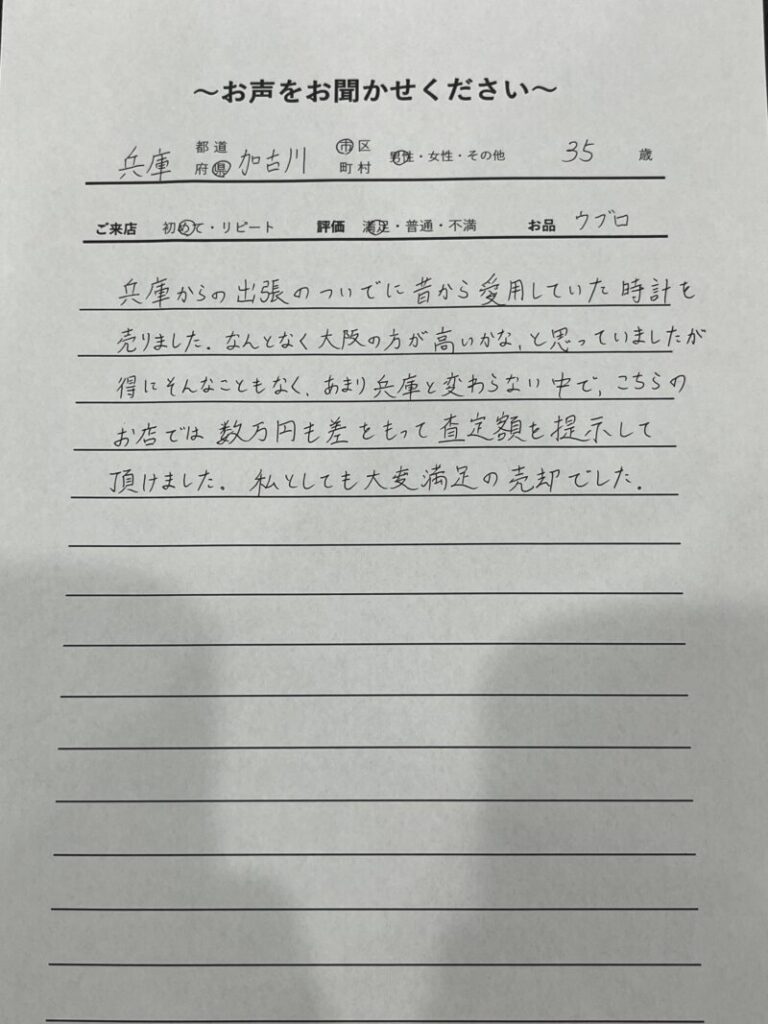 ～お声をお聞かせください～
兵庫 都道府県 加古川 市区町村 男性・女性・その他 35 歳
ご来店 初めて・リピート 評価 満足・普通・不満 お品 ウブロ
兵庫からの出張のついでに昔から愛用していた時計を
売りました。なんとなく大阪の方が高いかな、と思っていましたが
得にそんなこともなく、あまり兵庫と変わらない中で、こちらの
お店では数万円も差をもって査定額を提示して
頂けました。私としても大変満足の売却でした。